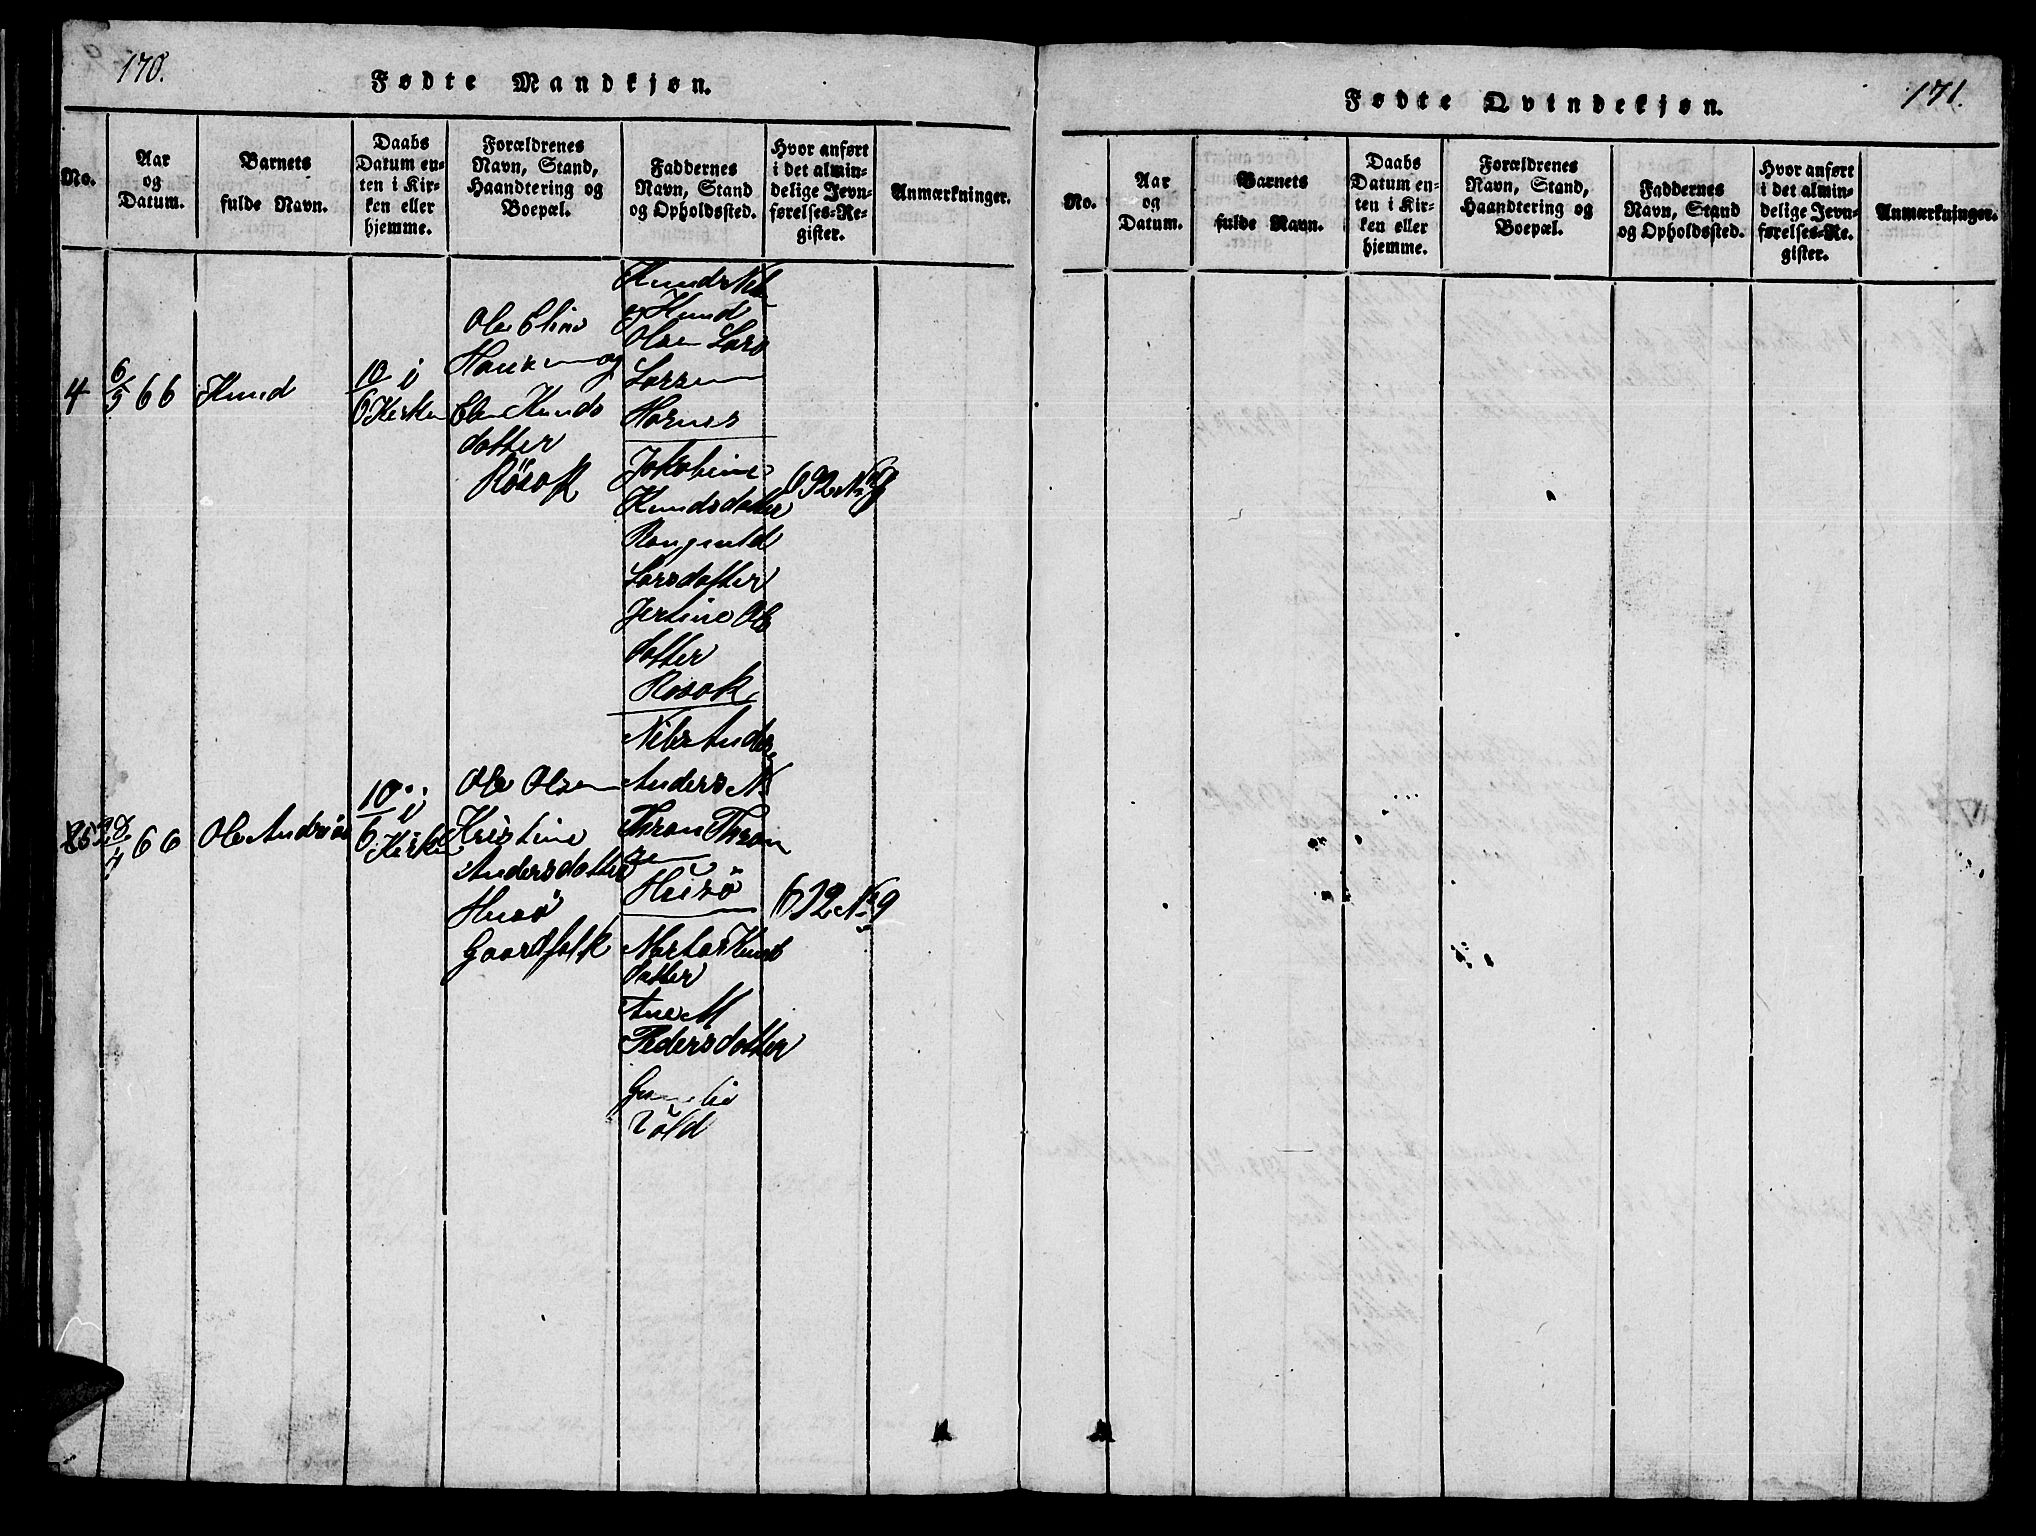 170.
Fødte Mandkjøn.
No.
Aar
og
Datum.
Barnets
fulde Navn.
Daabs
Datum en-
ten i Kir-
ken eller
hjemme.
Forældrenes
Navn, Stand,
Haandtering og
Boepæl.
Faddernes
Navn, Stand
og Opholdssted.
Hvor anført
i det almin-
delige Jevn-
førelses-Re-
gister.
Anmærkninger.
4
6/5 66
Knud
10/6 i
Kirken
Ole
og
Knuds
datter
Rösok
Knud
Olsen Lars
Larsen
Hornes
Jakobine
Knudsdatter
Rangnild
Larsdatter
Jertine Ols
datter
Rösok
692 No 8
28/4 66
Ole Andreas
10/6 i
Kirke
Ole Olsen
Kristine
Andersdatter
Husö
Gaardfolk
Niels Anders
Anders N
Thron Thron
sen
Husö
Knuds
datter
Ane M
Pedersdatter
692 No 9
171.
Fødte Qvindekjøn.
No.
Aar
og
Datum.
Barnets
fulde Navn.
Daabs
Datum en-
ten i Kir-
ken eller
hjemme.
Forældrenes
Navn, Stand,
Haandtering og
Boepæl.
Faddernes
Navn, Stand
og Opholdssted.
Hvor anført
i det almin-
delige Jevn-
førelses-Re-
gister.
Anmærkninger.